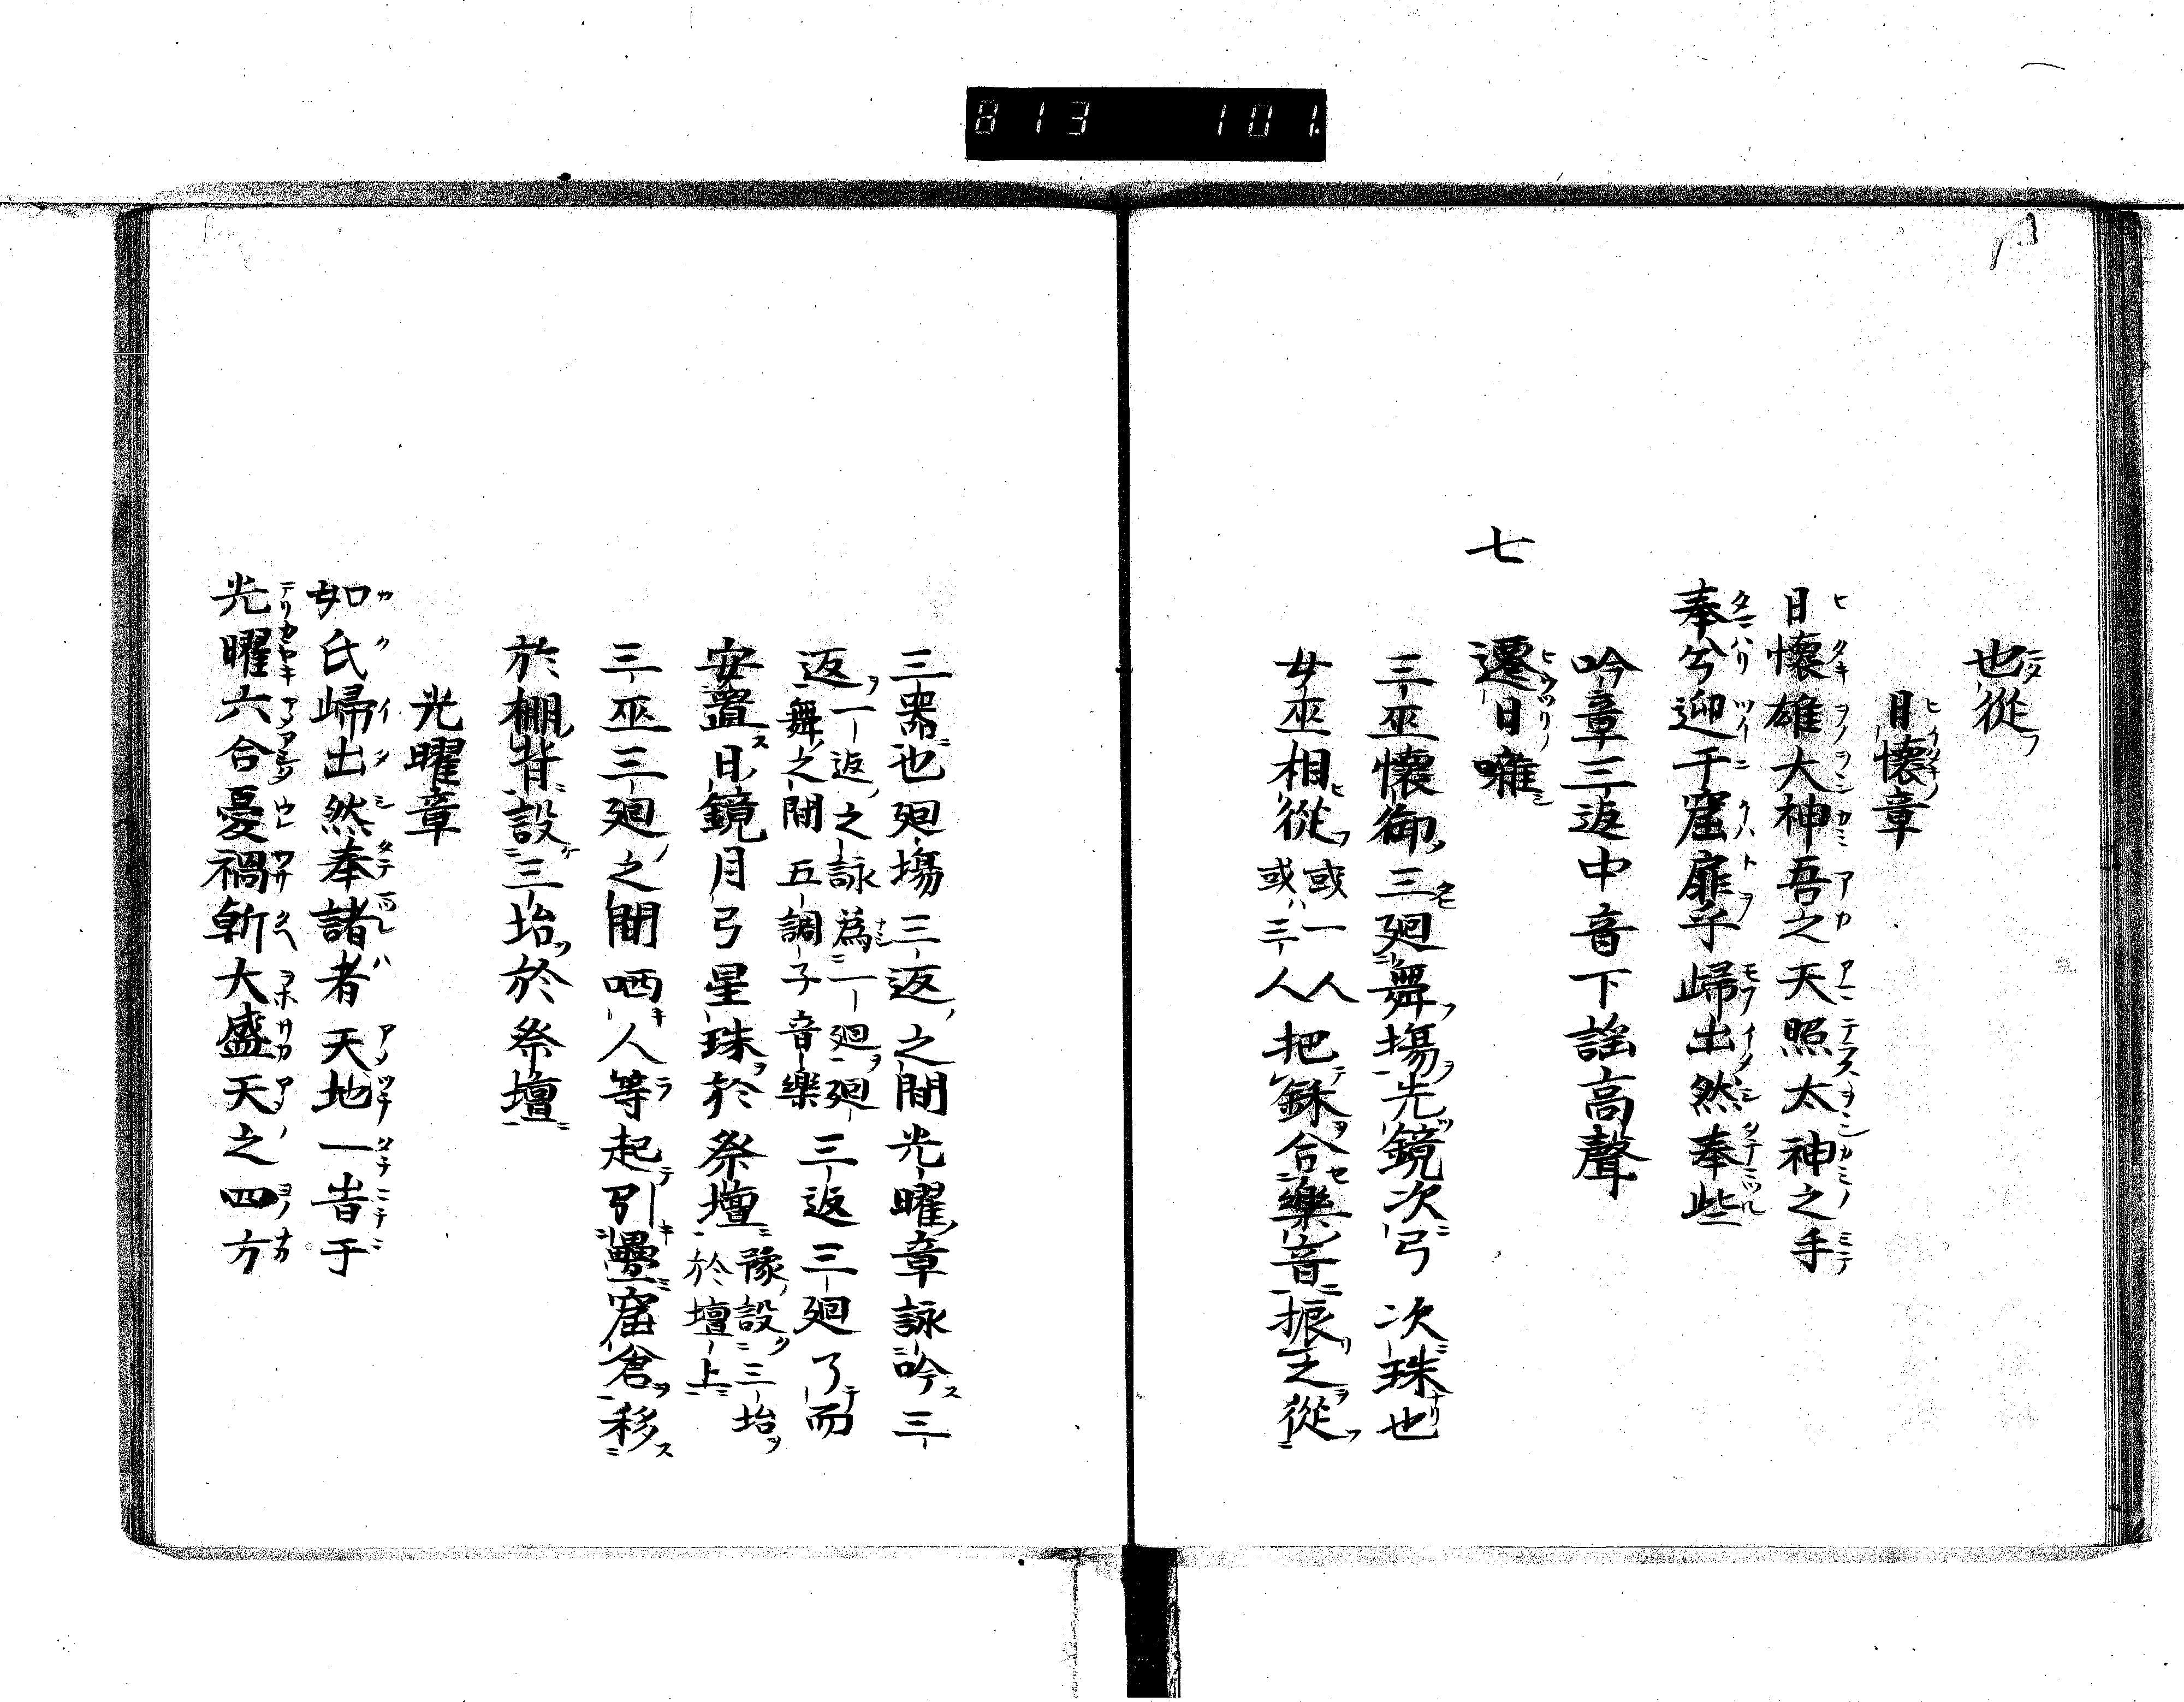 813 101
也從
日懷章
日懷雄大神吾之天照太神之手
奉兮迎于窟扉乎歸出然奉些
吟章三返中音下謡高聲
七 遷日㗙
三巫懷御三廻舞場先鏡次弓次珠也
女巫相從或一人或三人把鉌合樂音振之從
三器也廻場三返之間光曜章詠吟三
返一返之詠為一廻廻舞之間五調子音樂三返三廻了而
安置日鏡月弓星珠於祭壇豫設三坮於壇上
三巫三廻之間哂人等起引疊窟倉移
於棚背設三坮於祭壇
光曜章
如氐歸出然奉諸者天地一旹于
光曜六合憂禍斬大盛天之四方